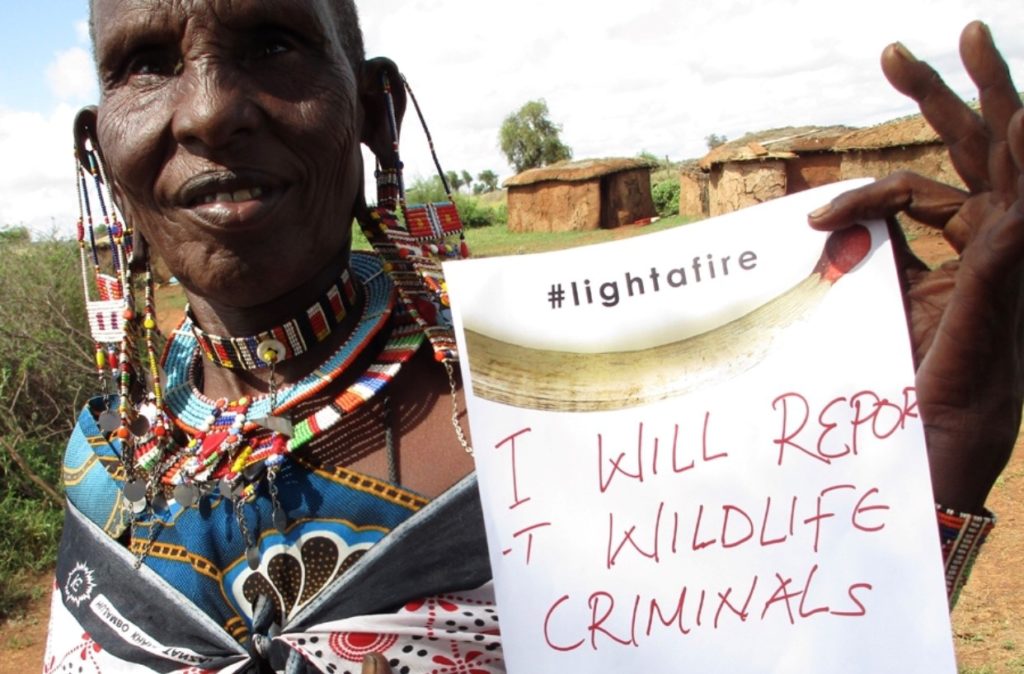 #lightafire
I WILL REPOR
-T WILDLIFE
CRIMINALS